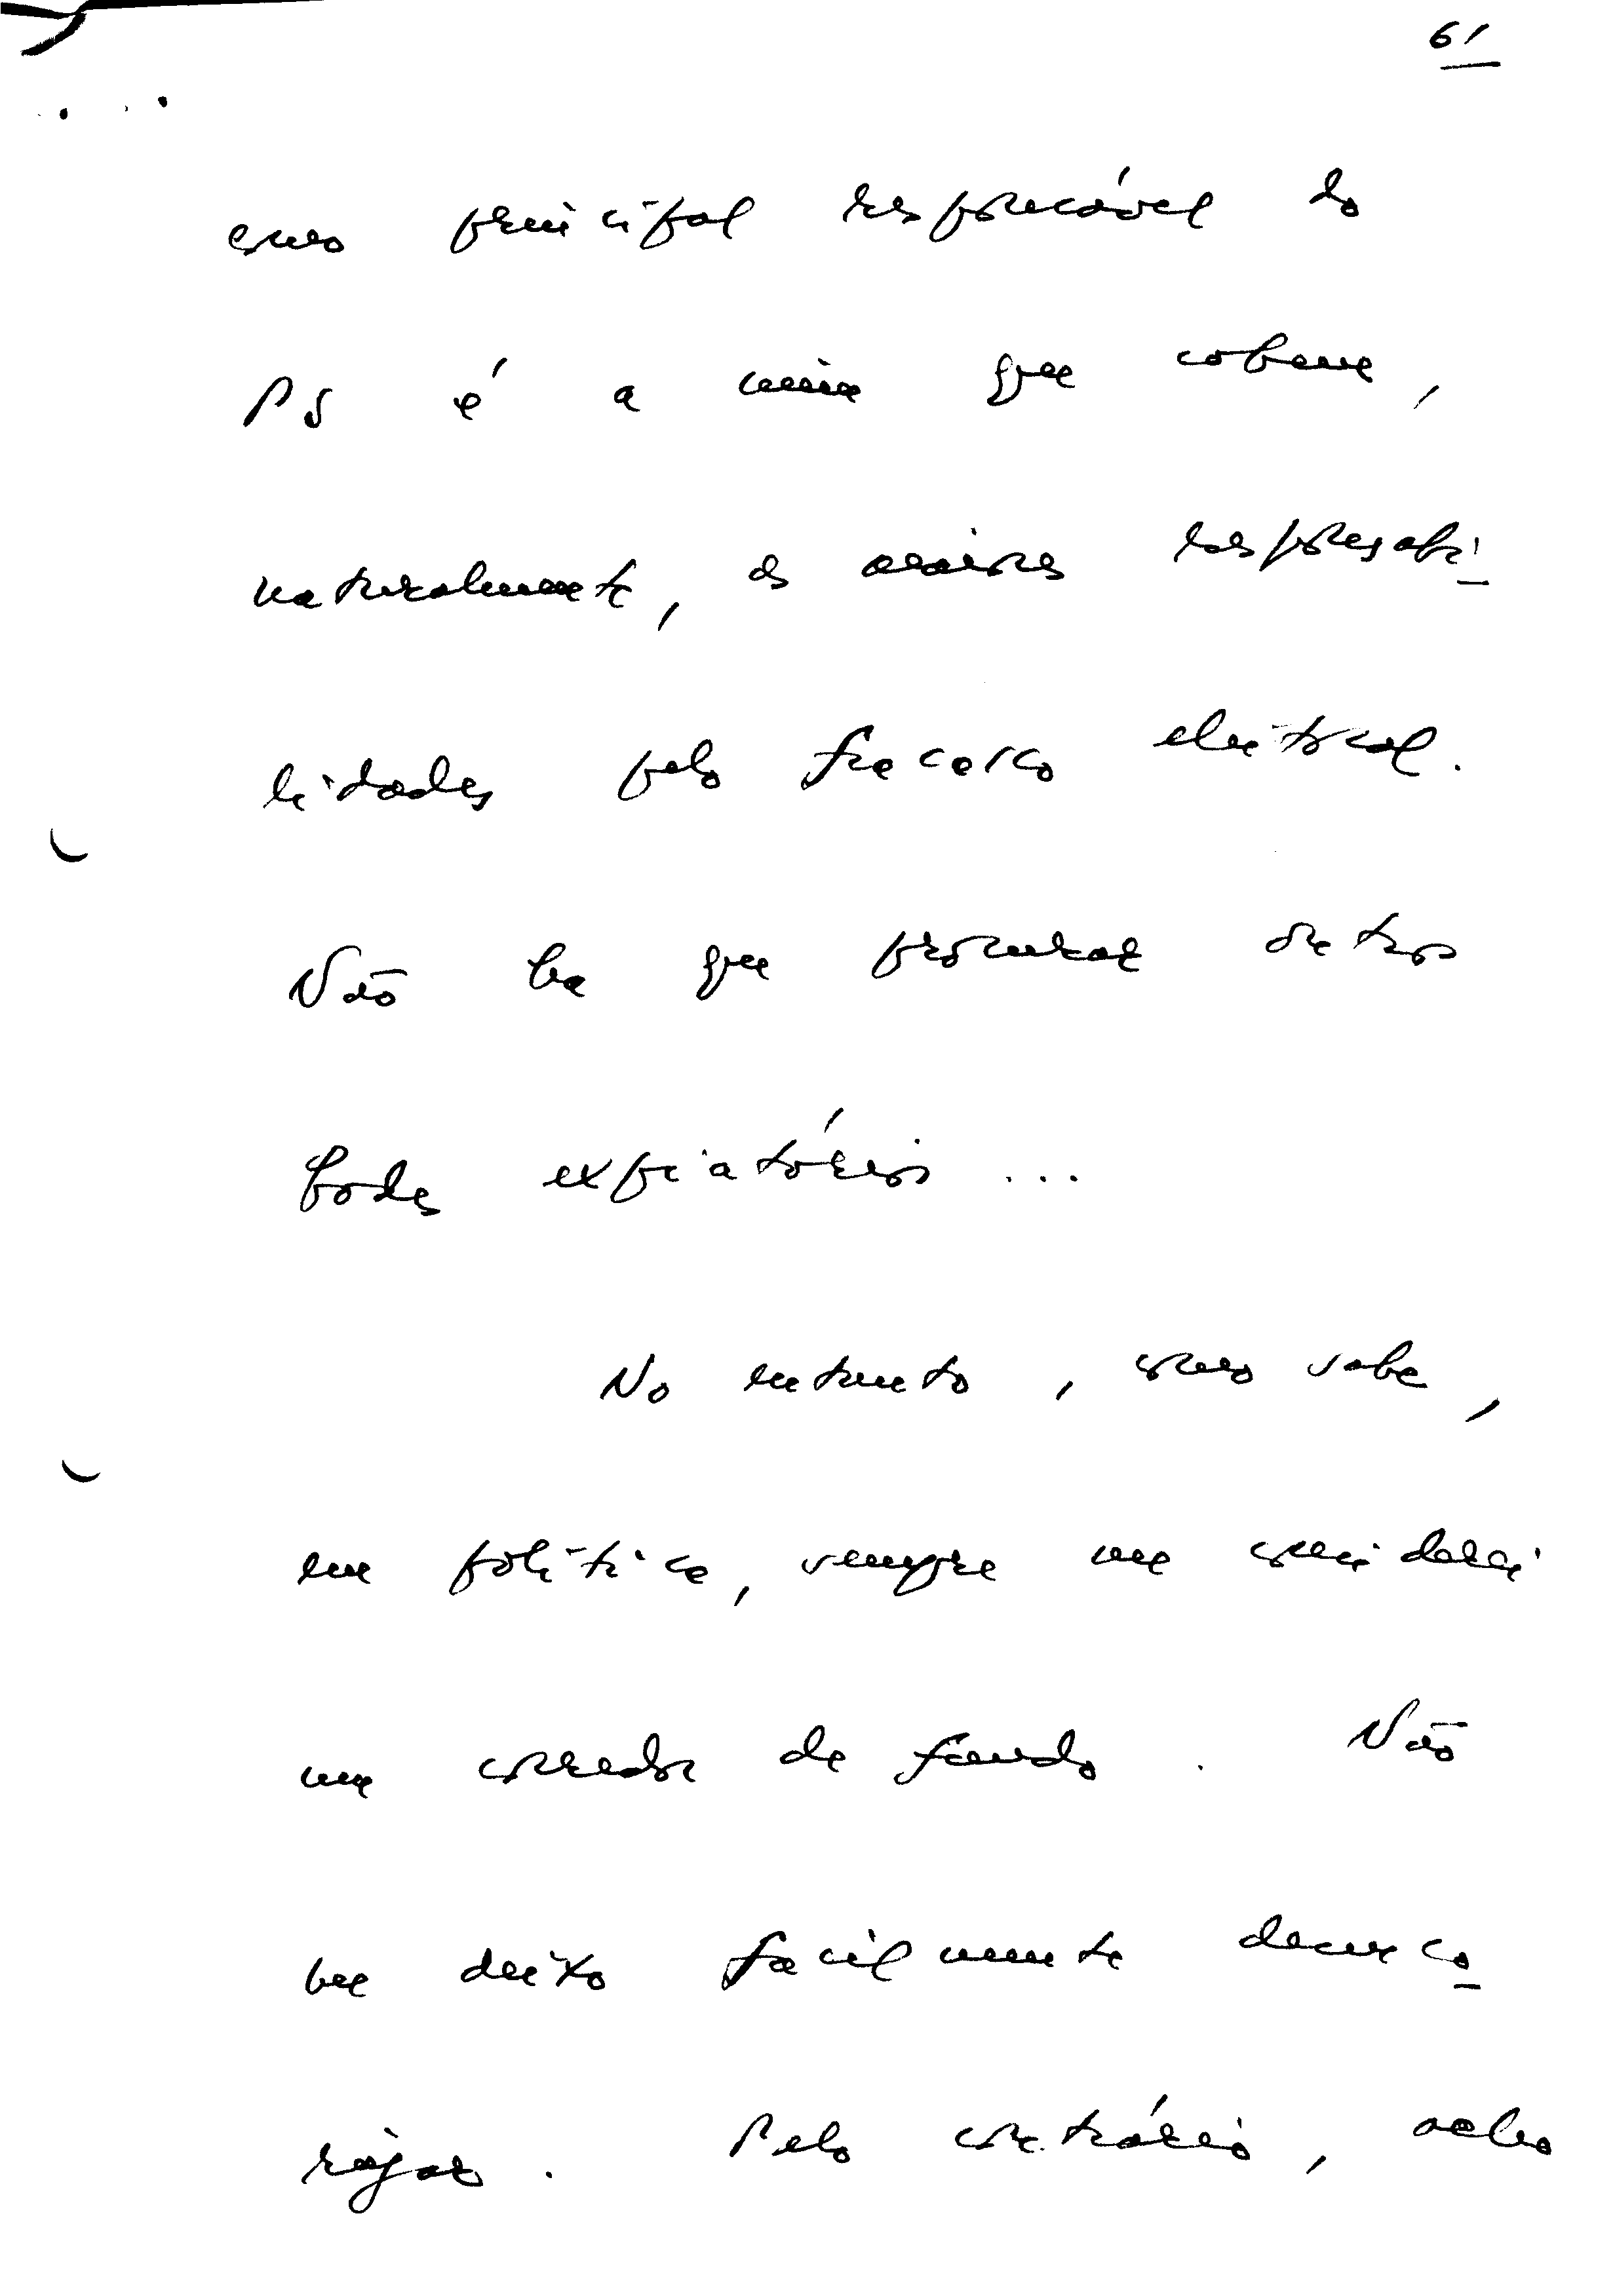 6/
como principal responsável do
PS é a mim que cabem,
naturalmente, as maiores responsabi-
lidades pelo fracasso eleitoral.
Não há que procurar outros
bodes expiatórios ...
No entanto, como sabe,
em política, sempre me considerei
um corredor de fundo. Não
me deixo facilmente desenco-
rajar. Pelo contrário, acho